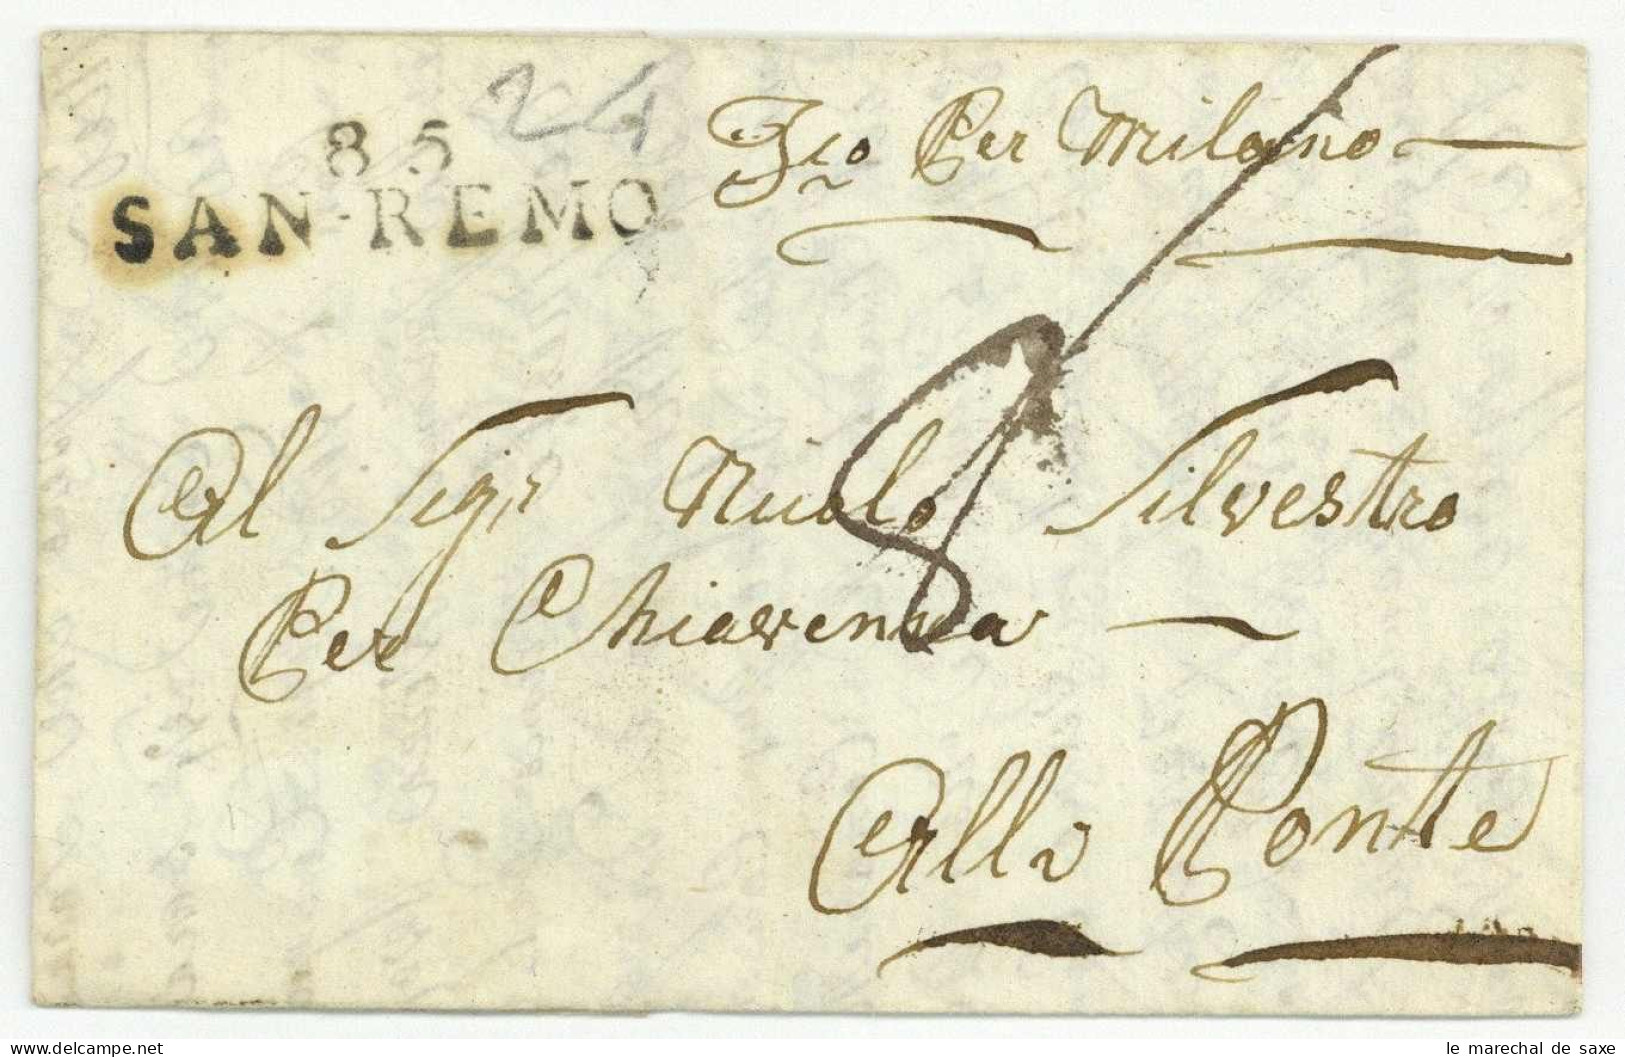 85 24
SAN-REMO
Fco Per Milano
8
Al Sigr Nicolo Silvestro
Per Chiavenna
Alla Ponte
www.delcampe.net
le marechal de saxe